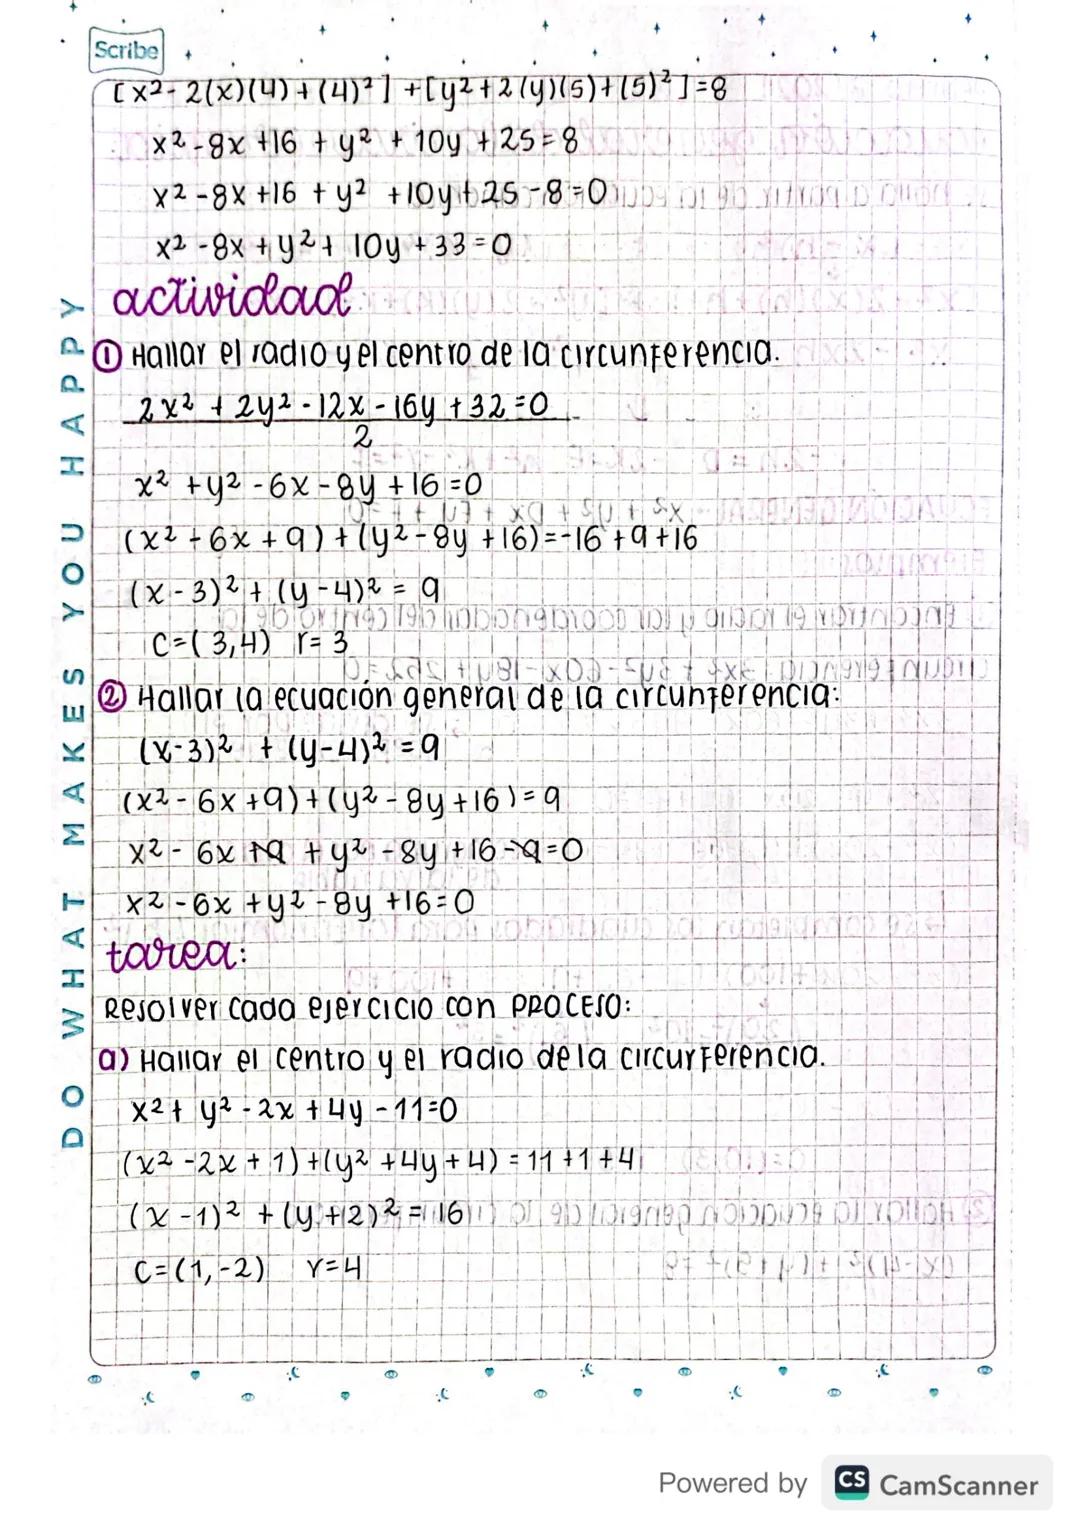 Scribe
[x²-2(x)(4)+(4)²]+[y²+2(y)(5)+(5)²]=8
x²-8x+16+y²+10y+25=8
x²-8x+16+y²+10y+25-8=0
x²-8x+y²+10y+33=0
actividad
① Hallar el radio y el centro de la circunferencia.
2x²+2y²-12x-16y+32=0
2
x²+y²-6x-8y+16=0
(x²+6x+9)+(y²-8y+16)=-16+9+16
(x-3)²+(y-4)²=9
C=(3,4) r=3
② Hallar la ecuación general de la circunferencia:
(x-3)²+(y-4)²=9
(x²-6x+9)+(y²-8y+16)=9
x²-6x+9+y²-8y+16-9=0
x²-6x+y²-8y+16=0
tarea:
Resolver cada ejercicio con PROCESO:
a) Hallar el centro y el radio de la circurferencia.
x²+y²-2x+4y-11=0
(x²-2x+1)+(y²+4y+4)=11+1+4
(x-1)²+(y+2)²=16
C=(1,-2) r=4
DO WHAT MAKES YOU HAPPY
Powered by CS CamScanner